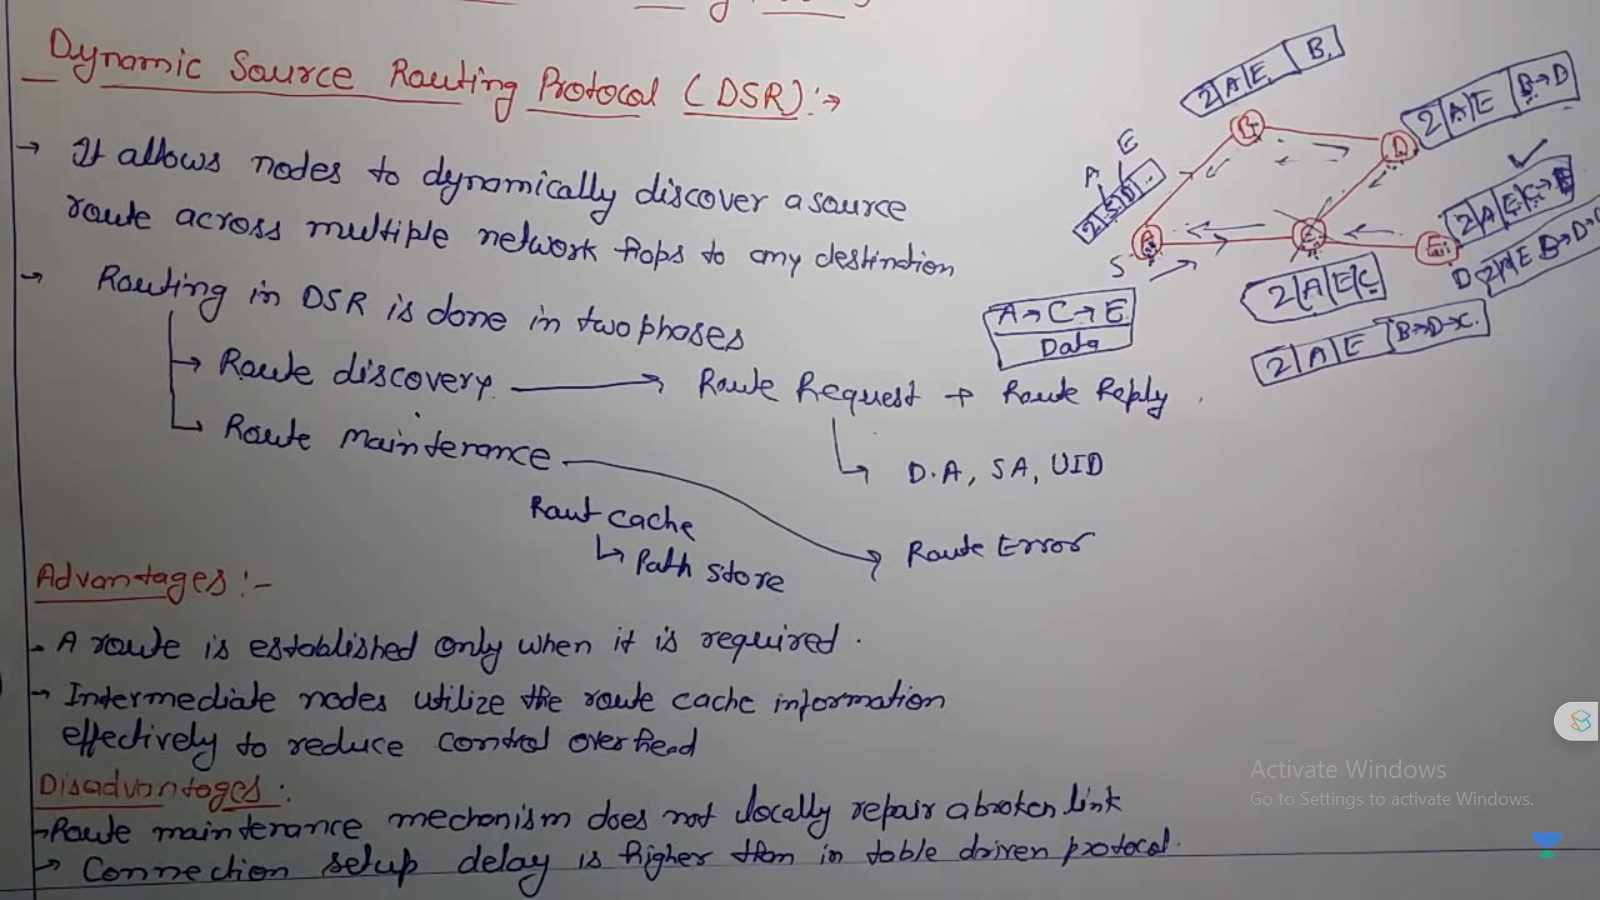 Dynamic Source Routing Protocol (DSR):→
→ It allows nodes to dynamically discover a source
route across multiple network hops to any destination
→ Routing in DSR is done in two phases
→ Route discovery → Route Request + Route Reply
D.A, SA, UID
→ Route Maintenance → Route Error
Rout cache
↳ Path store
Advantages:-
→ A route is established only when it is required.
→ Intermediate nodes utilize the route cache information
effectively to reduce control overhead
Disadvantages:
→ Route maintenance mechanism does not locally repair a broken link
→ Connection setup delay is higher than in table driven protocol.
2|A|E|B.
B
2|A|E|B→D
D
A E
2|S|D|..
A
S
C
E
D
2|A|E|C→E
2|A|E B→D→
2|A|E|C
2|A|E|B→D→C.
A→C→E
Data
Activate Windows
Go to Settings to activate Windows.